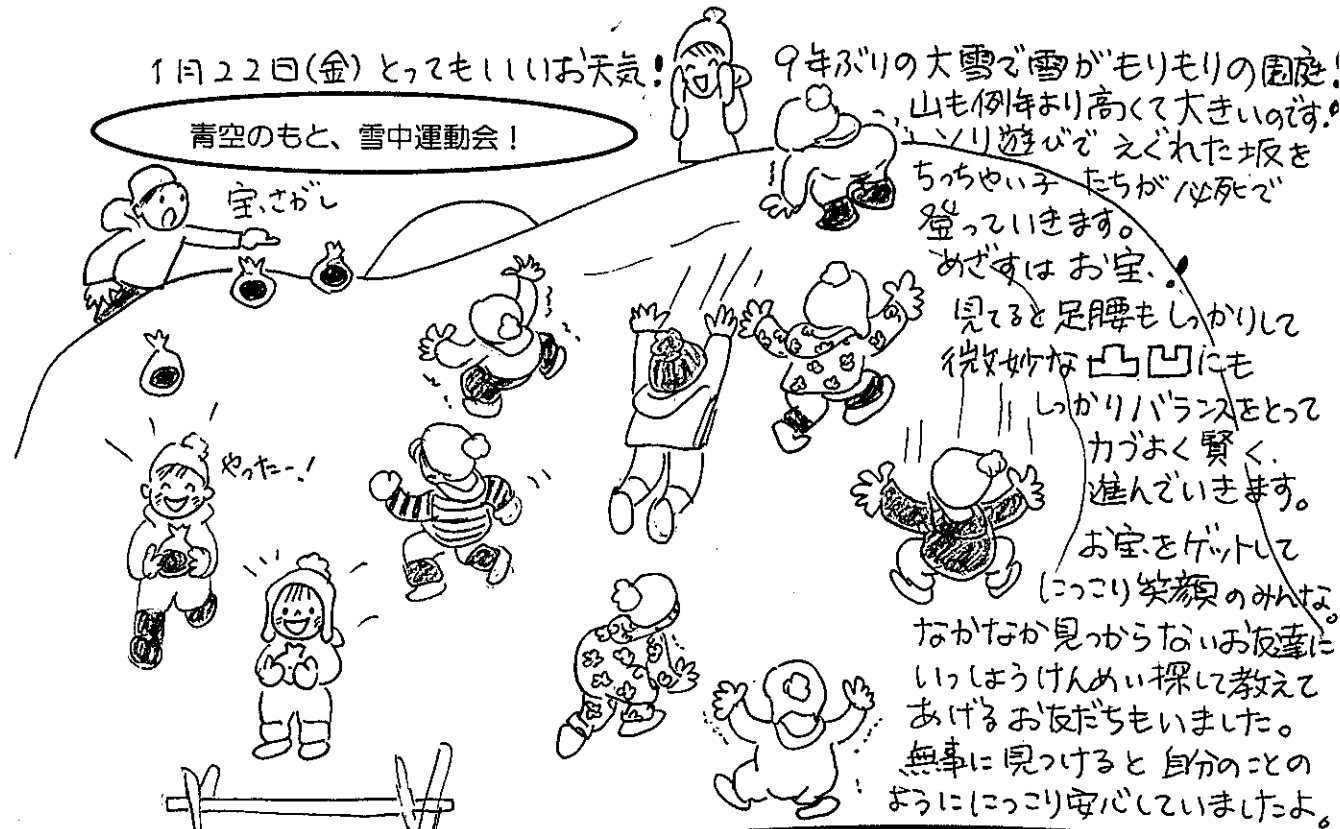 1月22日(金) とってもいいお天気!
青空のもと、雪中運動会!
宝さがし
やったー!
9年ぶりの大雪で雪がもりもりの園庭!
山も例年より高くて大きいのです!
ソリ遊びでえぐれた坂を
ちっちゃい子たちが必死で
登っていきます。
めざすはお宝!
見てると足腰もしっかりして
微妙な凸凹にも
しっかりバランスをとって
力づよく賢く
進んでいきます。
お宝をゲットして
にっこり笑顔のみんな。
なかなか見つからないお友達に
いっしょうけんめい探して教えて
あげるお友だちもいました。
無事に見つけると自分のことの
ようににっこり安心していましたよ。